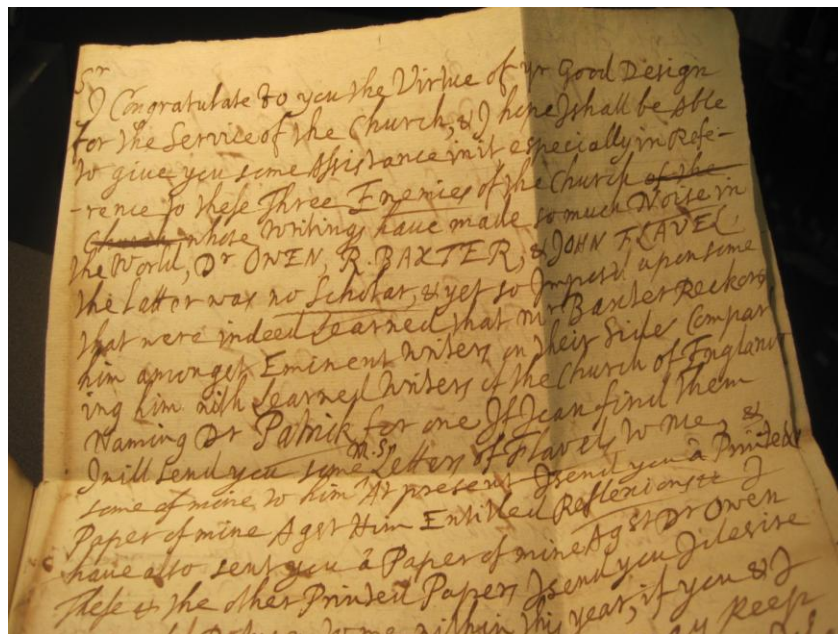 Sr
I Congratulate to you the Virtue of yr Good Design
For the Service of the Church, & I hope I shall be Able
to give you some Assistance in it, especially in Refe-
-rence to these Three Enemies of the Church of the
Church whose Writings have made so much Noise in
the World, Dr OWEN, R. BAXTER, & JOHN FLAVEL,
the Latter was no Scholar, & yet so Impos'd upon some
that were indeed Learned that Mr Baxter Reckons
him amongst Eminent Writers on their Side Compar
ing him with Learned Writers of the Church of England
Naming Dr Patrik for one If I can find Them
I will send you some M.S. Letters of Flavels to Me, &
some of mine to him. At present I send you a Printed
Paper of mine Agst Him Entitled Reflexions &c I
have also sent you a Paper of mine Agst Dr Owen
These & the other Printed Papers I send you I desire
to me within this year, if you & I
Keep